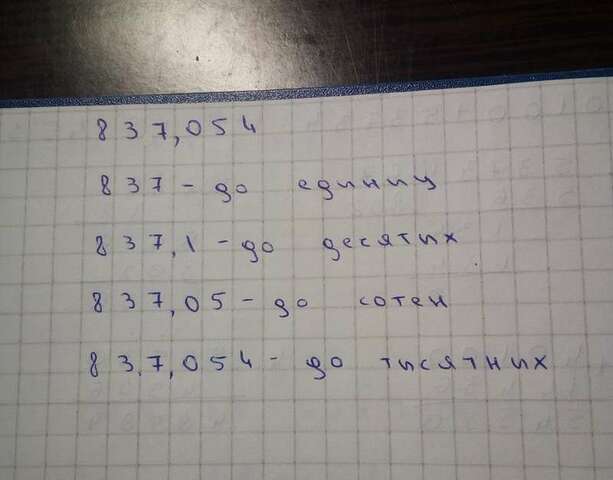 837,054
837 - до единиц
837,1 - до десятих
837,05 - до сотен
83,7,054 - до тисятних